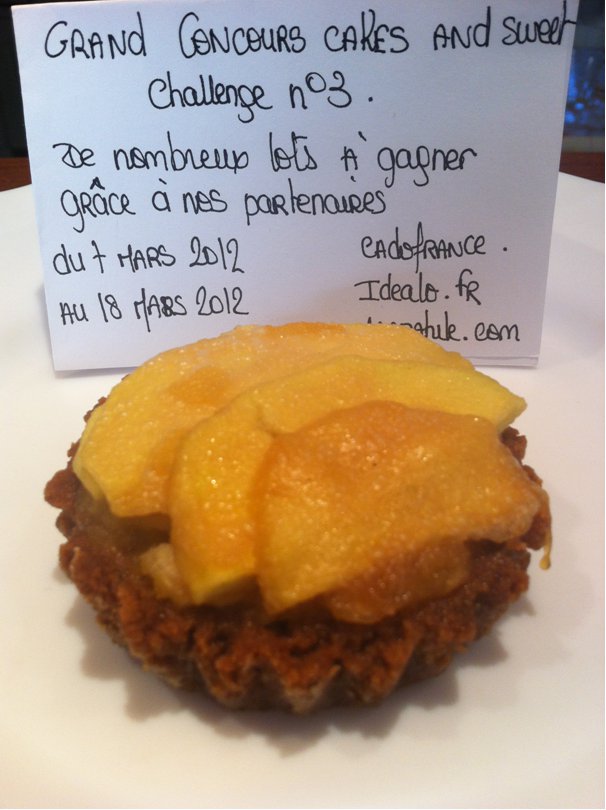 GRAND CONCOURS CAKES AND SWEET
Challenge n°3.
De nombreux lots A gagner
grâce à nos partenaires
du 7 MARS 2012
AU 18 MARS 2012
CADOFRANCE.
Idealo.fR